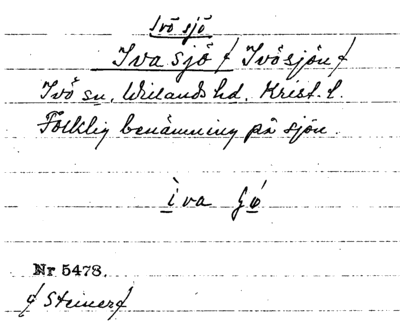 Ivö sjö
Iva sjö / Ivösjön /
Ivö sn. Willands hd. Krist. l.
Folklig benämning på sjön.
ì va gó
Nr 5478.
/ Steiner /